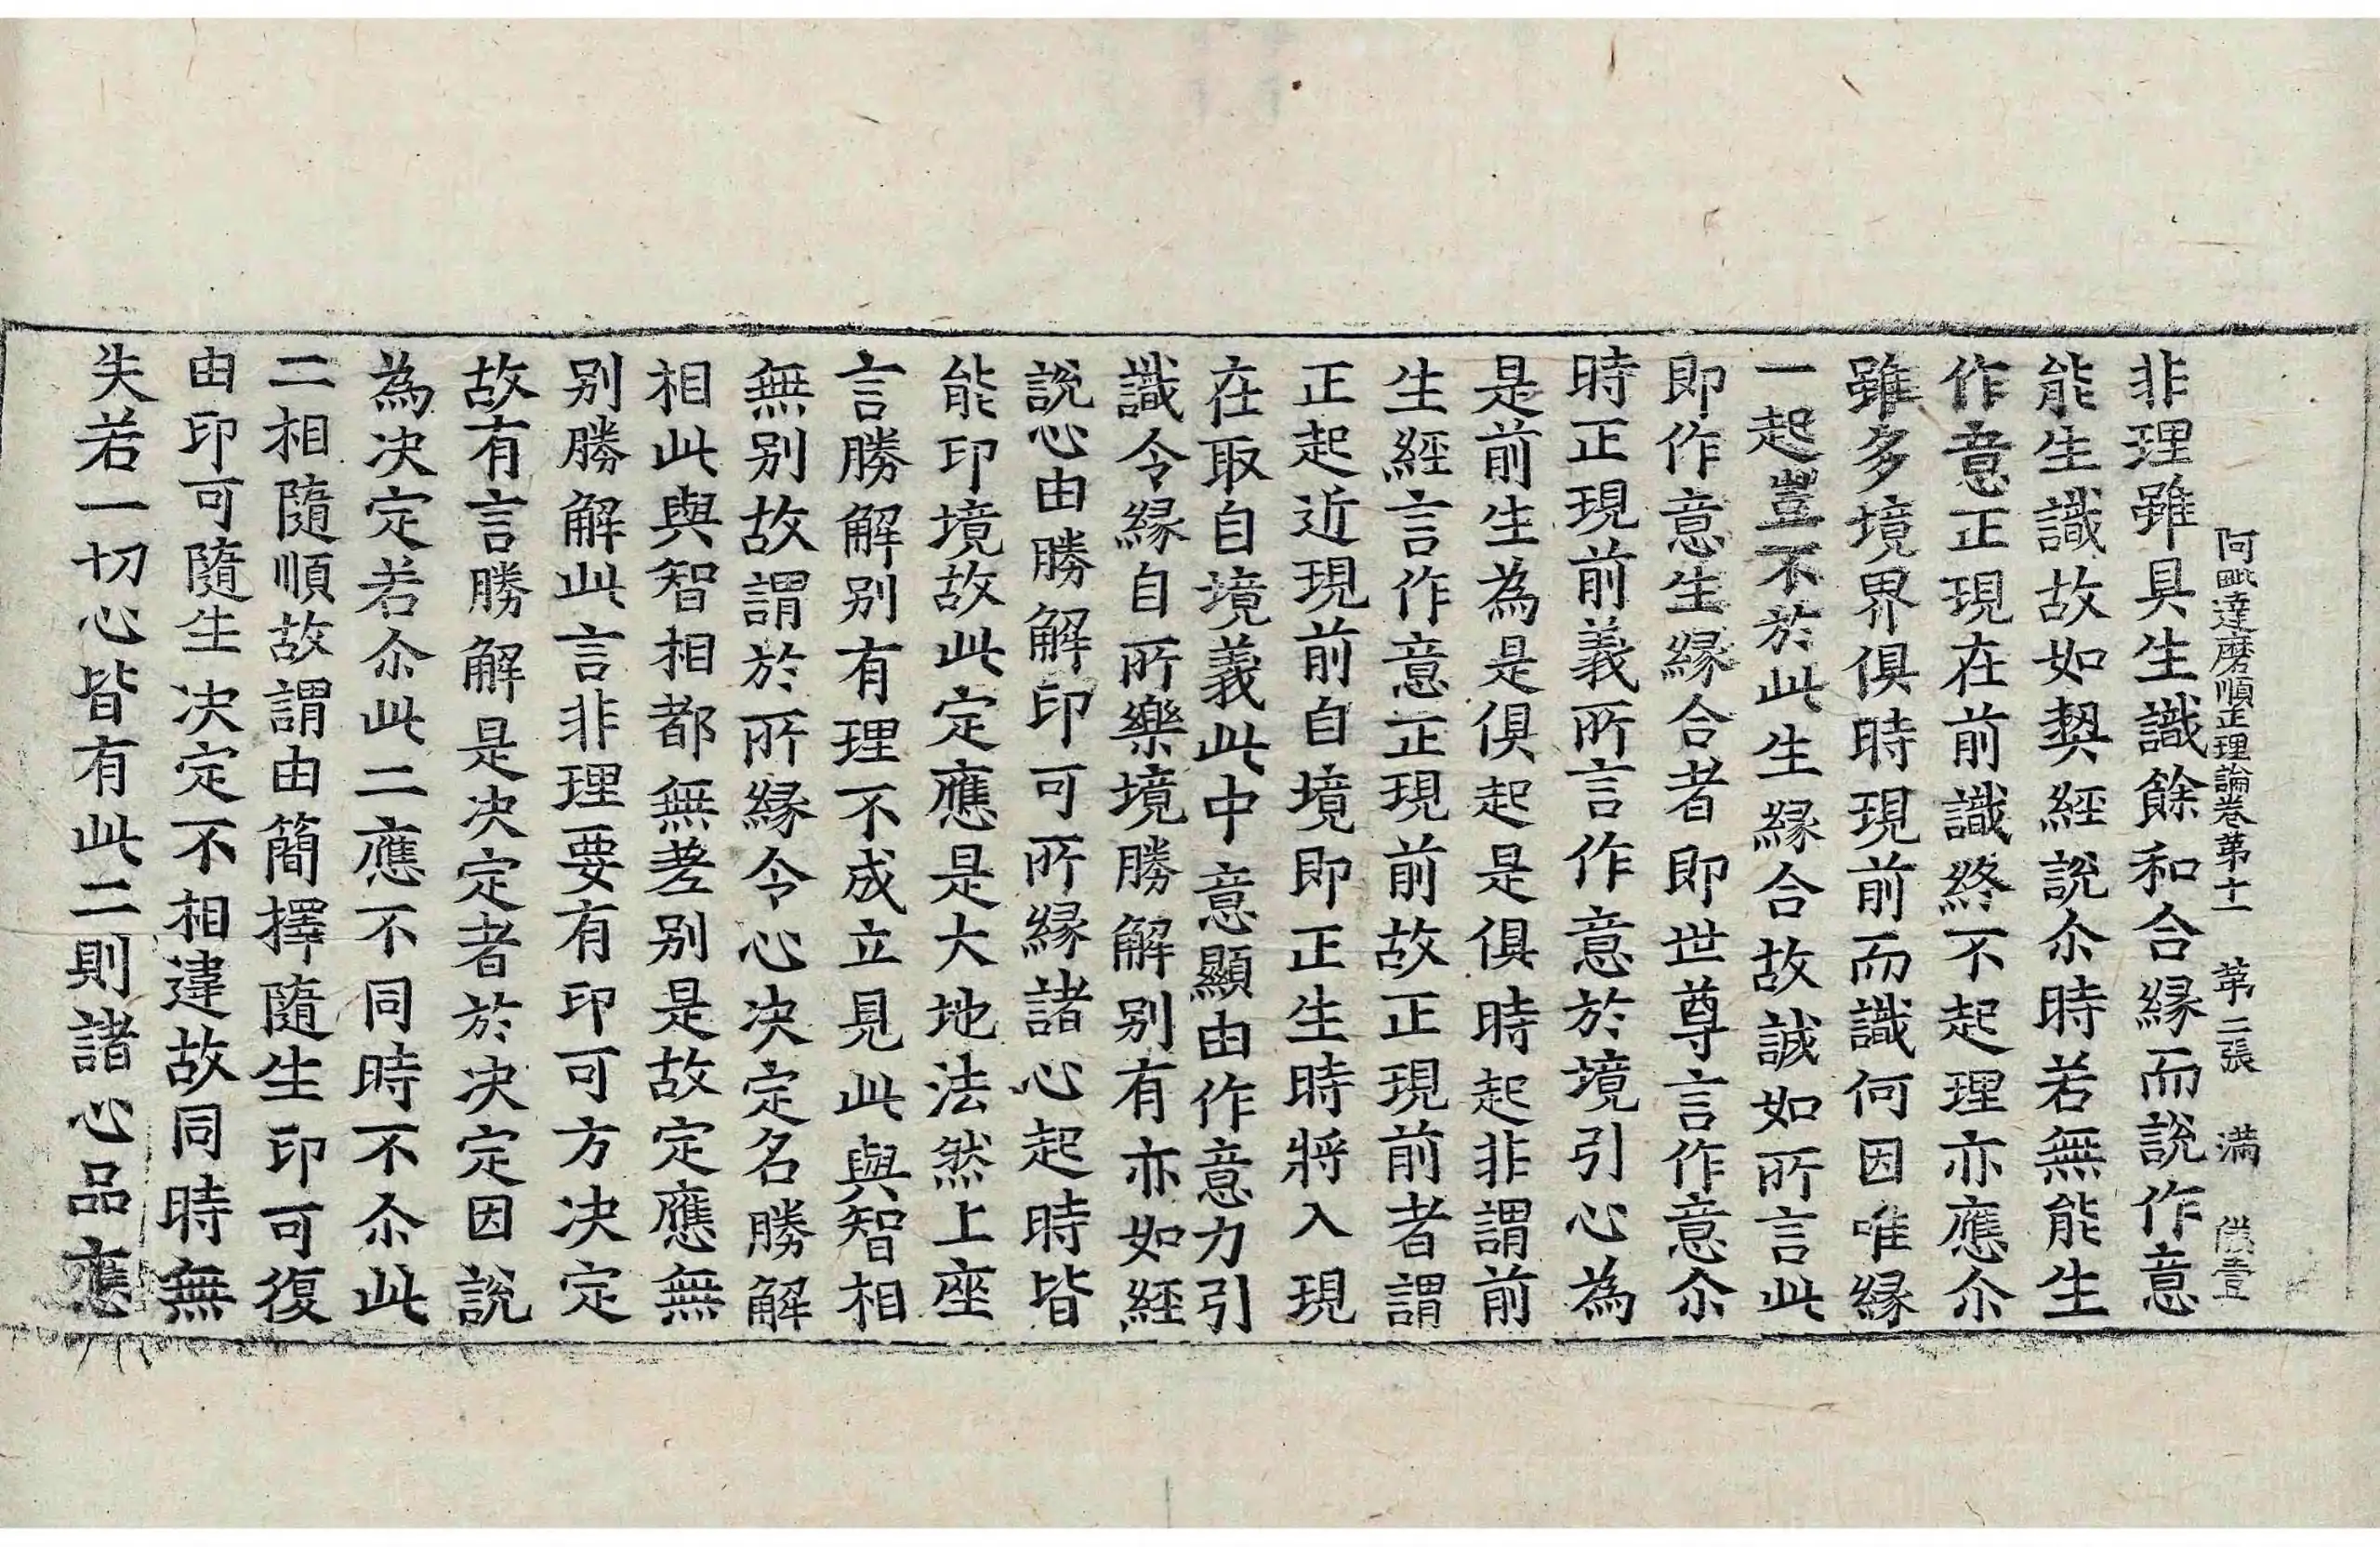 阿毗達磨順正理論卷第十一　第二張　滿
非理雖具生識餘和合緣而說作意
能生識故如契經說尒時若無能生
作意正現在前識終不起理亦應尒
雖多境界俱時現前而識何因唯緣
一起豈不於此生緣合故誠如所言此
即作意生緣合者即世尊言作意尒
時正現前義所言作意於境引心為
是前生為是俱起是俱時起非謂前
生經言作意正現前故正現前者謂
正起近現前自境即正生時將入現
在取自境義此中意顯由作意力引
識令緣自所樂境勝解別有亦如經
說心由勝解印可所緣諸心起時皆
能印境故此定應是大地法然上座
言勝解別有理不成立見此與智相
無別故謂於所緣令心決定名勝解
相此與智相都無差別是故定應無
別勝解此言非理要有印可方決定
故有言勝解是決定者於決定因說
為決定若尒此二應不同時不尒此
二相隨順故謂由簡擇隨生印可復
由印可隨生決定不相違故同時無
失若一切心皆有此二則諸心品應